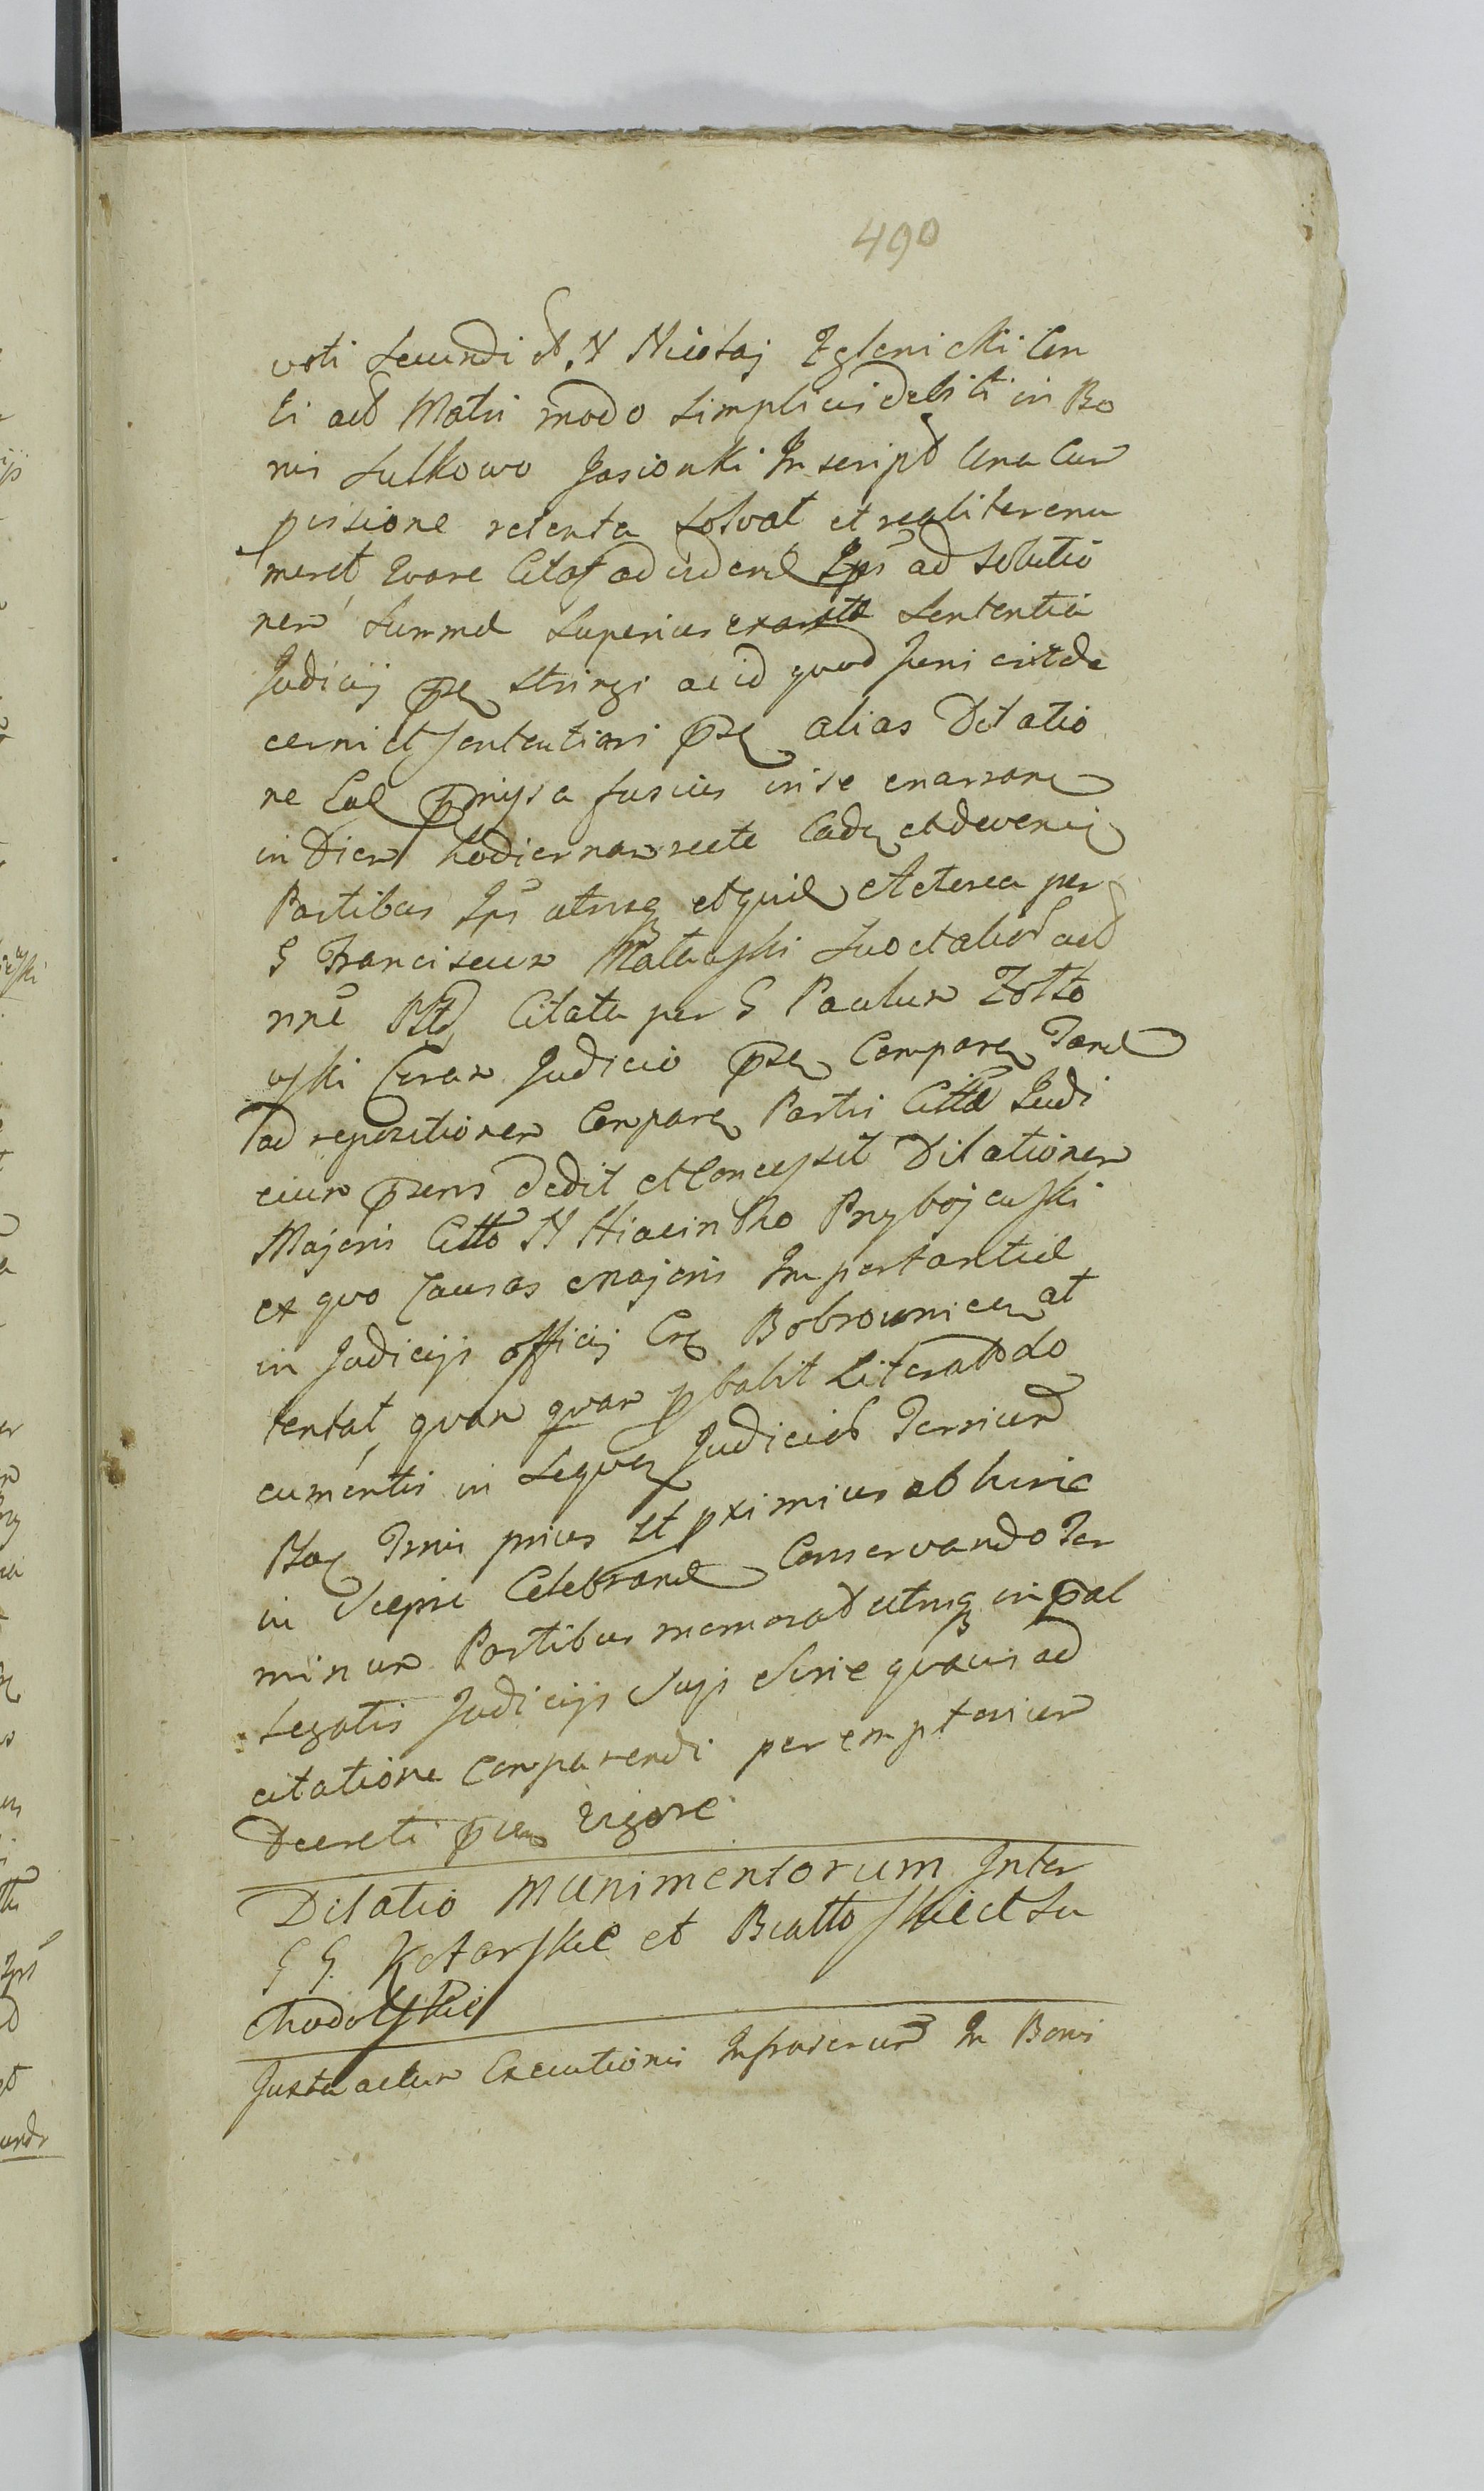 490
voti secundi N Nicolaj Zglenicki Con
ti ac Matri modo simplicis debiti in Bo
nis Sulkowo Jasionki Inscript una cum
pensione retenta solvat et realiter enu
meret, Quare Citat ad vidend Ips ad solutio
nem summæ superius Sententia
Judicij pr stringi ac id quod Juris est de
cerni et sententiari pr alias Dilatio
ne præmissa fusius in se enarran
in Diem hodiernam recte Cad et deveni
Partibus Ips utrisq et quid Actorea per
G Franciscum suo et alior
nne Citata per G Paulum Zołto
wski Coram Judicio pr Comparen Tand
ad repositionem Comparen Partis Cittæ Judi
cium præsens dedit et Concessit Dilationem
Majoris Citto N Hiacintho Przybojewski
ex quo Causas Majoris Importantiæ
in Judicijs officij Bobrownicen at
tentat, quam quam pbabit Literat do
cumentis in sequen Judicijs Terrium
Tmis prius et pximius ab hinc
in Sierpsc Celebrand Conservando Ter
minum Partibus memorat utrisq in præal
legatis Judicijs suis sine quavis ad
citatione Comparendi peremptorium
Decreti pr vigore
Dilatio Munimentorum Inter
G G. Kotarskie et Białłoskie et Su
chodolskie
Juxta actum Executionis Infrascrum In Bonis